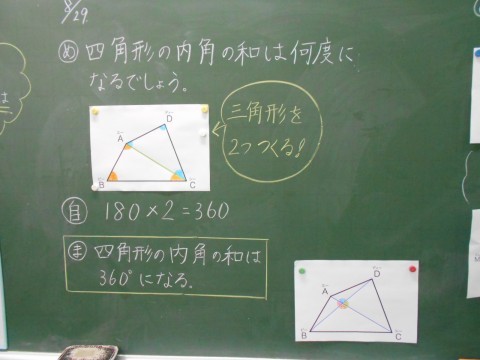 8/29
め 四角形の内角の和は何度に
なるでしょう。
三角形を
2つつくる!
A
D
B
C
自 180×2=360
ま 四角形の内角の和は
360°になる。
A
D
B
C
は